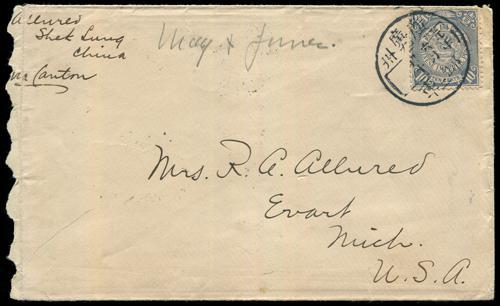 Allured
Shek Lung
China
via Canton
May & June.
廣
州
10
Mrs. R. A. Allured
Evart
Mich.
U.S.A.